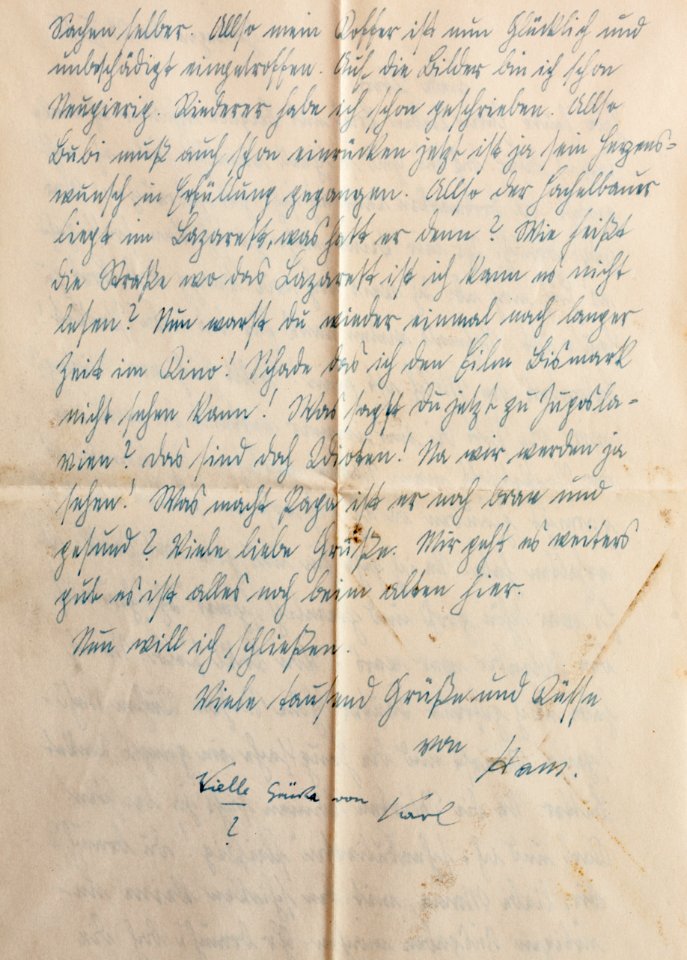 Sachen selber. Allso mein Koffer ist nun Glücklich und
unbeschädigt eingetroffen. Auf die Bilder bin ich schon
Neugierig. Riederer habe ich schon geschrieben. Allso
Bubi muß auch schon einrücken jetzt ist ja sein Herzens-
wunsch in Erfüllung gegangen. Allso der Hachelbauer
liegt im Lazarett, was hatt er denn? Wie heißt
die Straße wo das Lazarett ist ich kann es nicht
lesen? Nun warst du wieder einmal nach langer
Zeit im Kino! Schade das ich den Film Bismark
nicht sehen kann! Was sagst du jetzt zu Jugosla-
wien? das sind doch Idioten! Na wir werden ja
sehen! Was macht Papa ist er noch brav und
gesund? Viele liebe Grüße. Mir geht es weiters
gut es ist alles noch beim alten hier.
Nun will ich schließen.
Viele tausend Grüße und Küsse
von
Hans.
Vielle Grüße von Karl
?